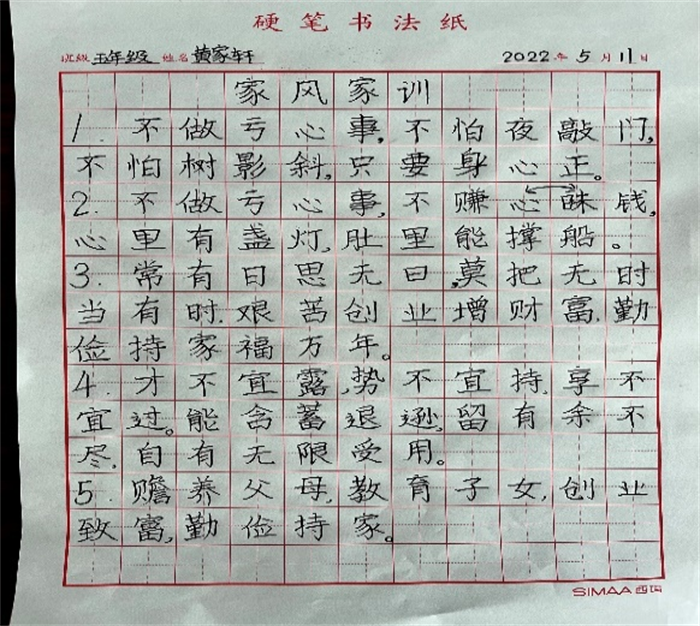 硬笔书法纸
班级 五年级 姓名 黄家轩 2022年5月11日
家风家训
1.不做亏心事,不怕夜敲门,
不怕树影斜,只要身心正。
2.不做亏心事,不赚心昧钱,
心里有盏灯,肚里能撑船。
3.常有日思无日,莫把无时
当有时,艰苦创业增财富,勤
俭持家福万年。
4.才不宜露,势不宜持,享不
宜过。能含蓄退逊,留有余不
尽,自有无限受用。
5.赡养父母,教育子女,创业
致富,勤俭持家。
SIMAA西玛